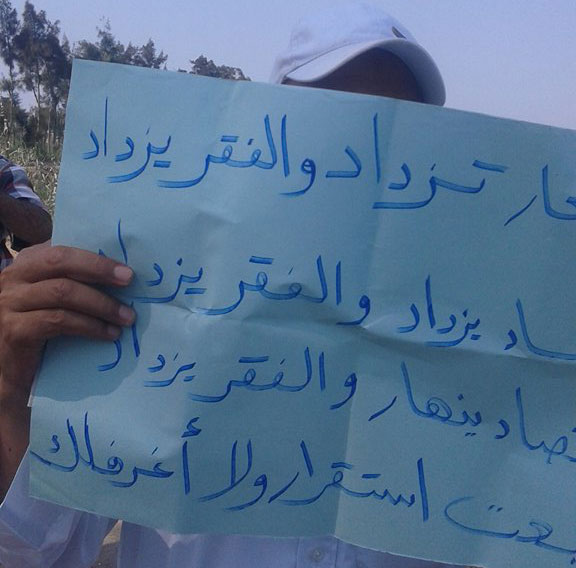 عار تزداد والفقر يزداد
ساد يزداد والفقر يزداد
تصاد ينهار والفقر يزداد
بعت استقرار ولا أغرفلك